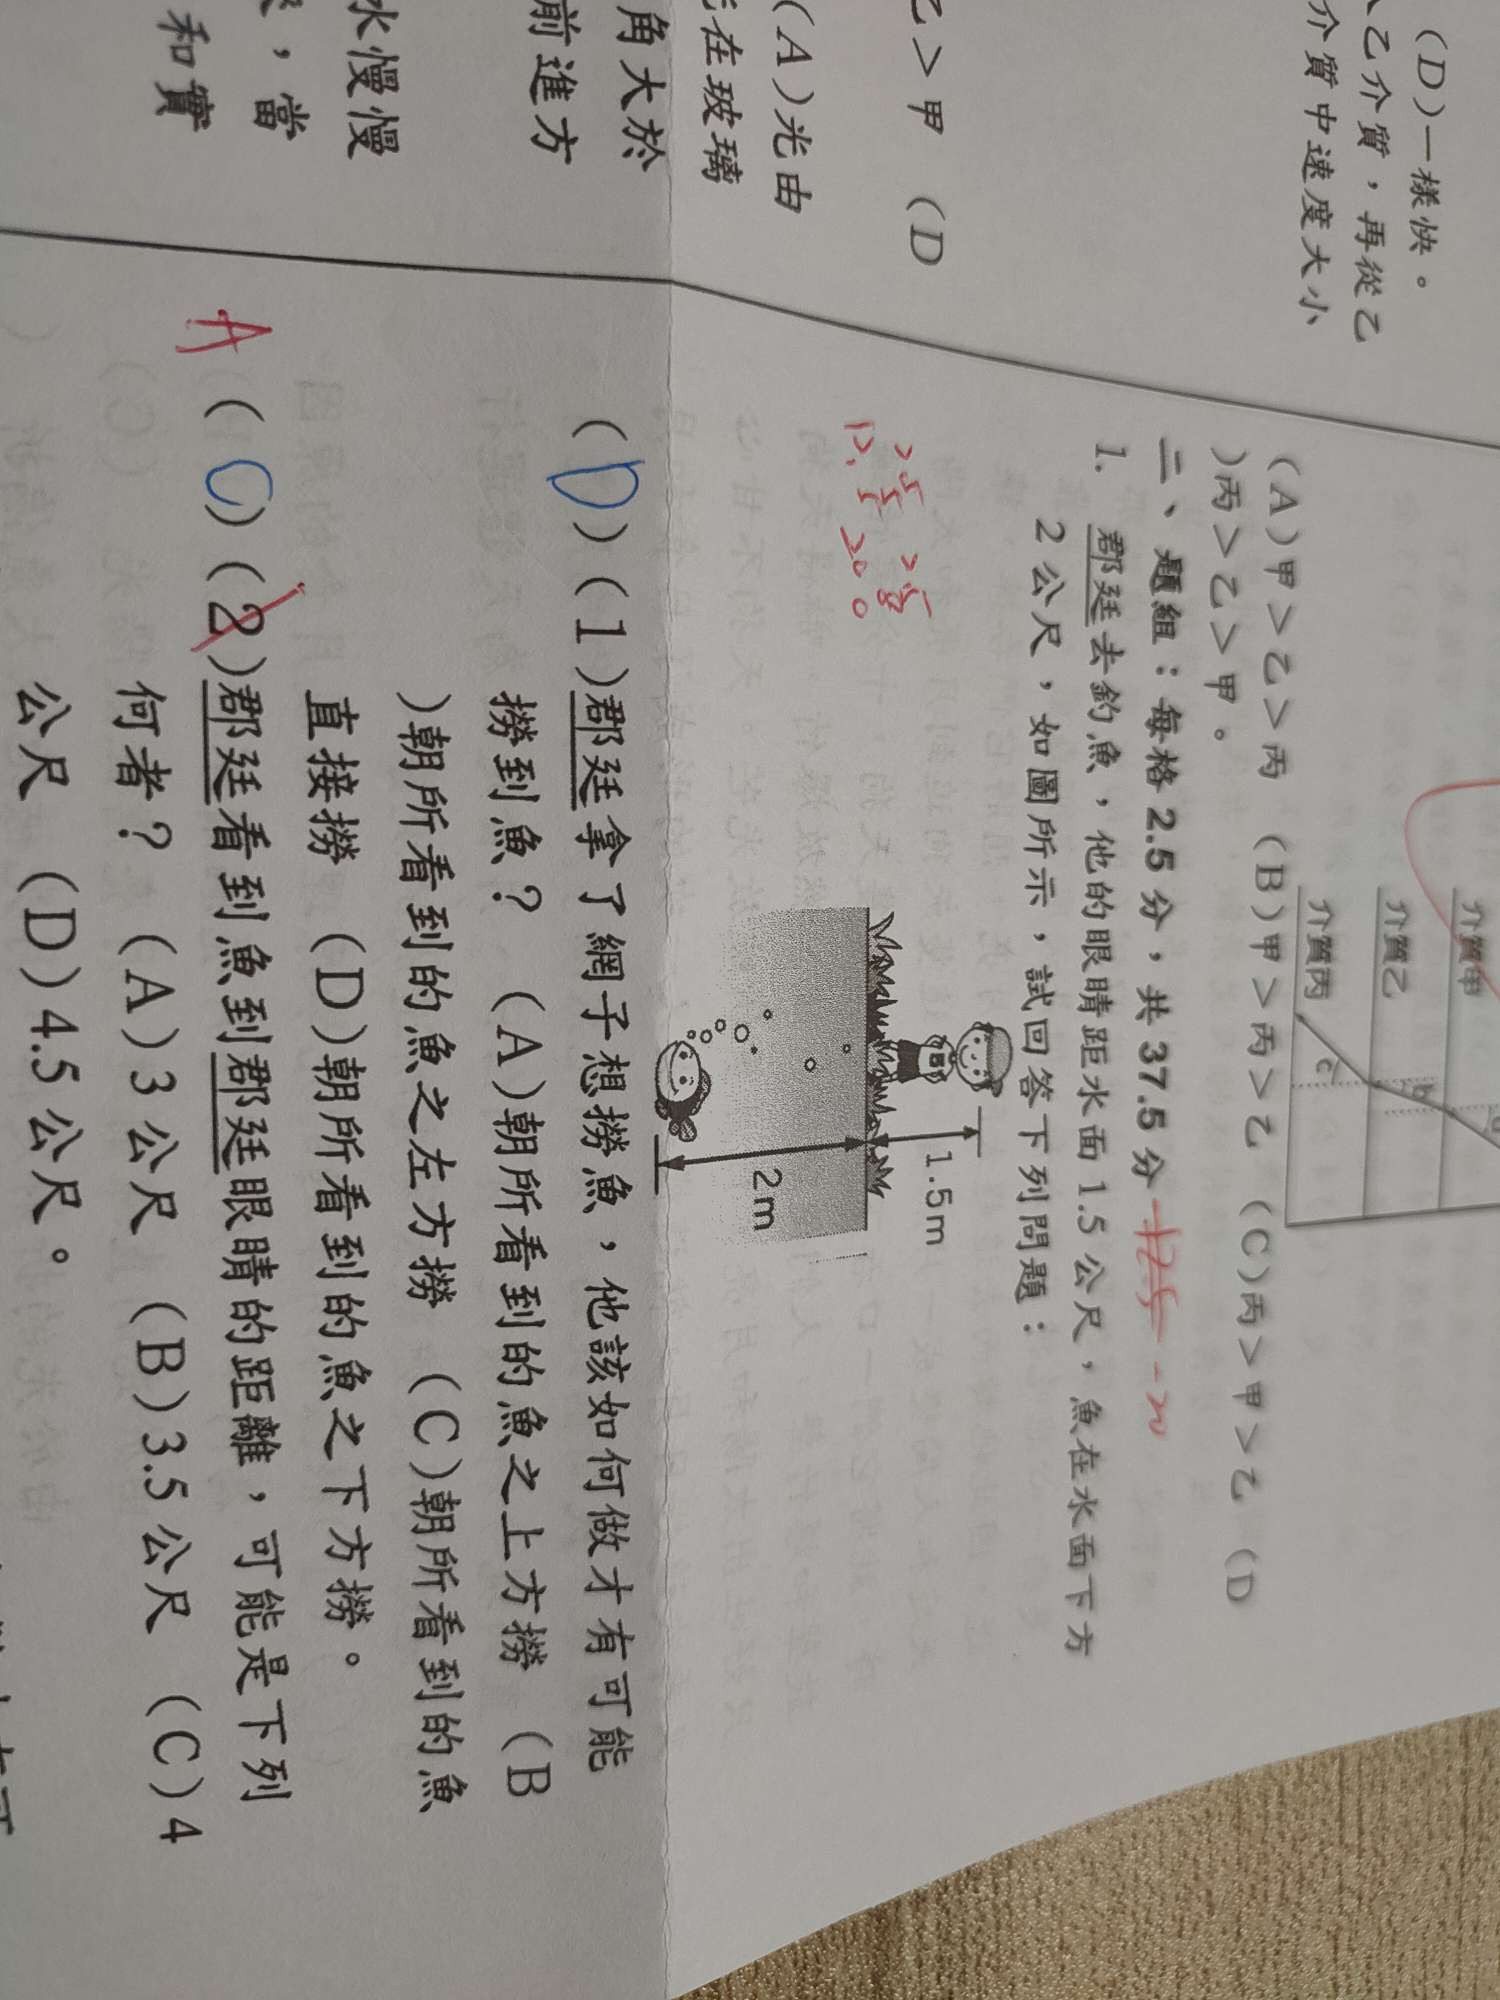 (D)一樣快。
乙介質，再從乙
介質中速度大小
乙＞甲 (D
(A)光由
在玻璃
角大於
前進方
水慢慢
，當
和實
介質甲
介質乙
介質丙
b
c
(A)甲＞乙＞丙 (B)甲＞丙＞乙 (C)丙＞甲＞乙 (D
)丙＞乙＞甲。
二、題組：每格2.5分，共37.5分
1. 郡廷去釣魚，他的眼睛距水面1.5公尺，魚在水面下方
2公尺，如圖所示，試回答下列問題：
1.5m
2m
(D)(1)郡廷拿了網子想撈魚，他該如何做才有可能
撈到魚？ (A)朝所看到的魚之上方撈 (B
)朝所看到的魚之左方撈 (C)朝所看到的魚
直接撈 (D)朝所看到的魚之下方撈。
A (C)(2)郡廷看到魚到郡廷眼睛的距離，可能是下列
何者？ (A)3公尺 (B)3.5公尺 (C)4
公尺 (D)4.5公尺。